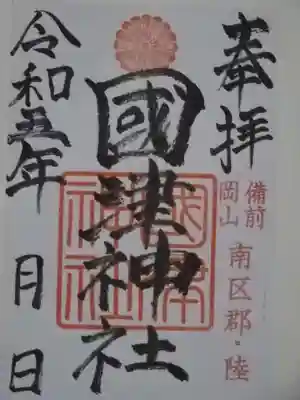 奉拝
備前
岡山
南区郡・陸
國津神社
國津
神社
令和五年
月
日